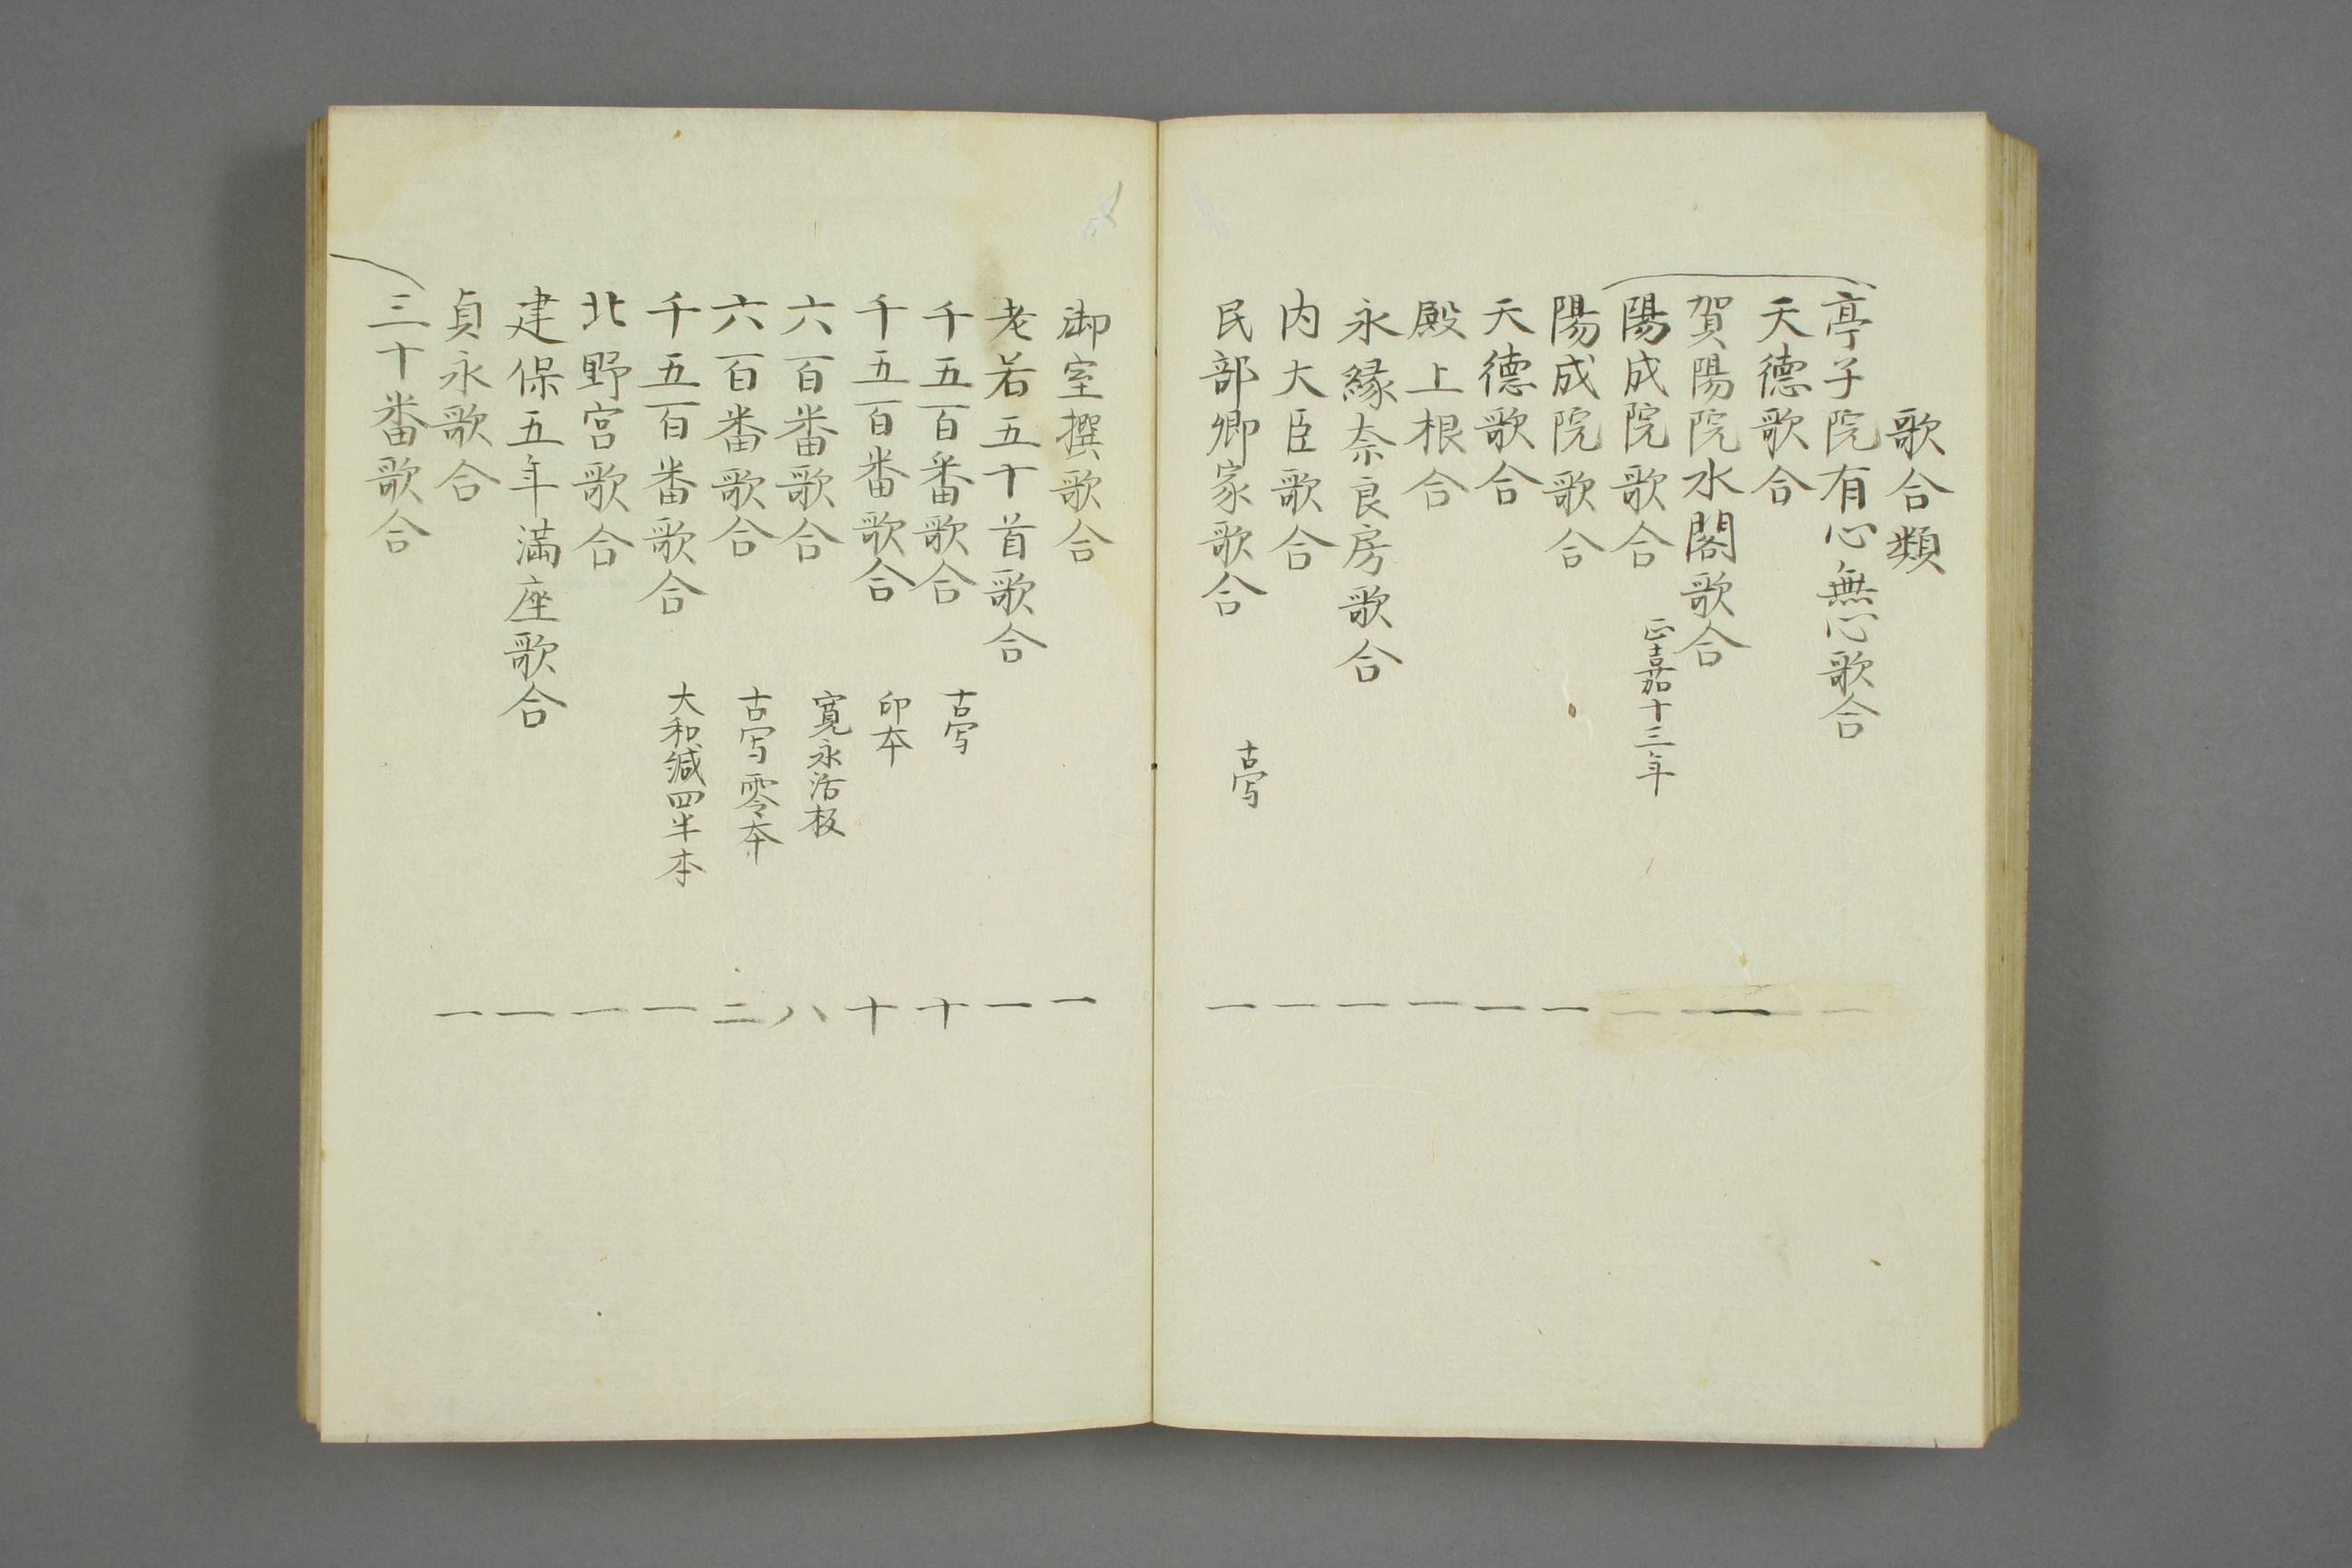 歌合類
亭子院有心無心歌合
天德歌合
賀陽院水閣歌合 一
陽成院歌合 正嘉十三年
陽成院歌合 一
天德歌合 一
殿上根合 一
永縁奈良房歌合 一
内大臣歌合 一
民部卿家歌合 古写 一
御室撰歌合 一
老若五十首歌合 一
千五百番歌合 古写 十
千五百番歌合 印本 十
六百番歌合 寛永活板 八
六百番歌合 古写零本 二
千五百番歌合 大和綴四半本 一
北野宮歌合 一
建保五年満座歌合 一
貞永歌合 一
三十番歌合